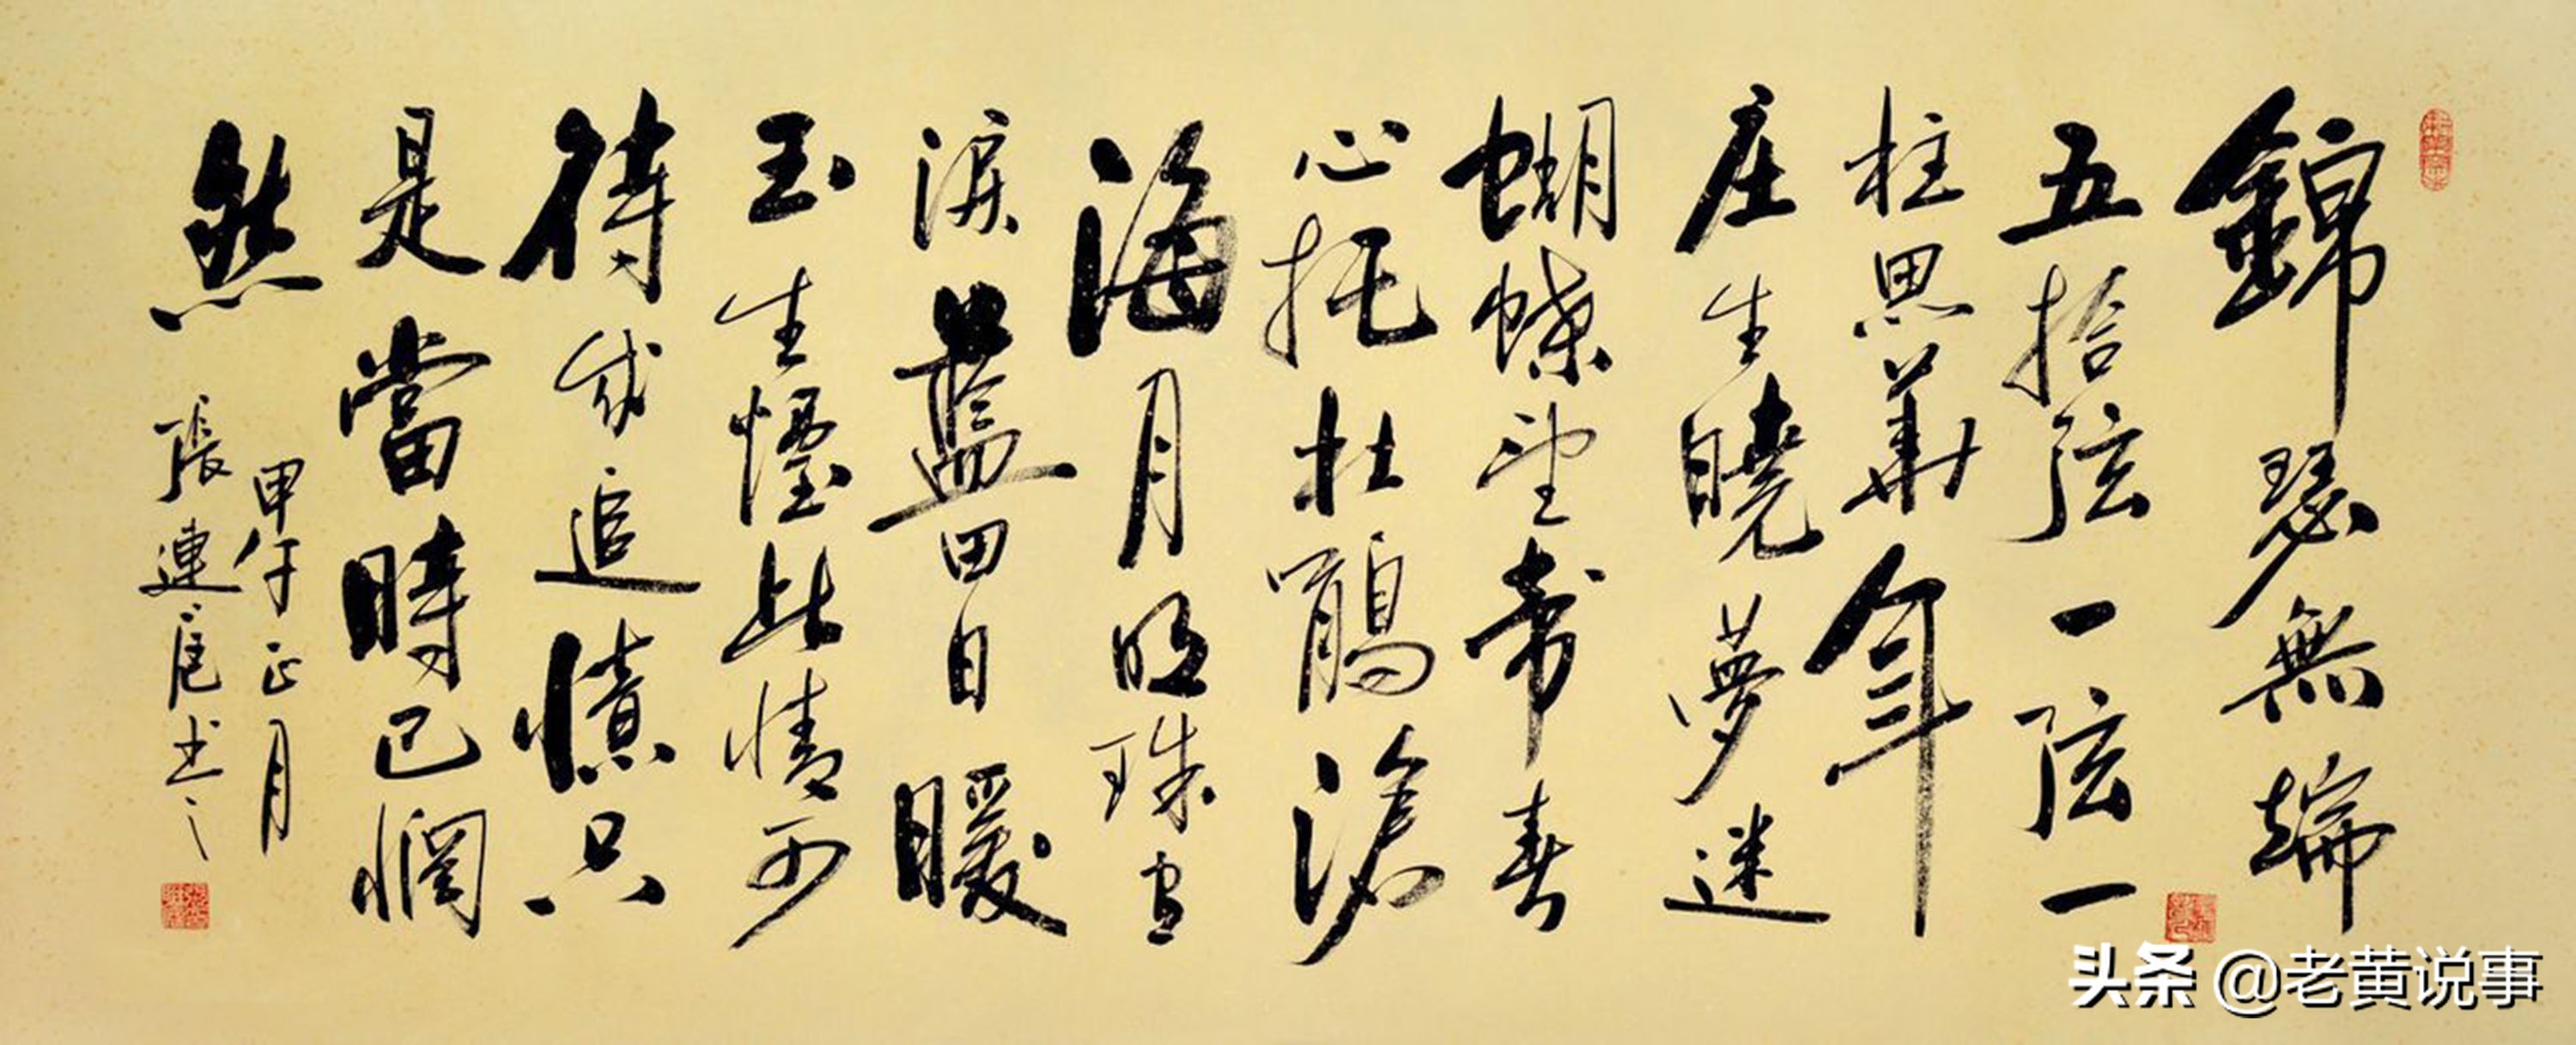 錦瑟無端
五拾弦一弦一
柱思華年
庄生曉夢迷
蝴蝶望帝春
心托杜鵑滄
海月明珠有
淚藍田日暖
玉生煙此情可
待成追憶只
是當時已惘
然
甲午正月
張連书之
头条 @老黄说事